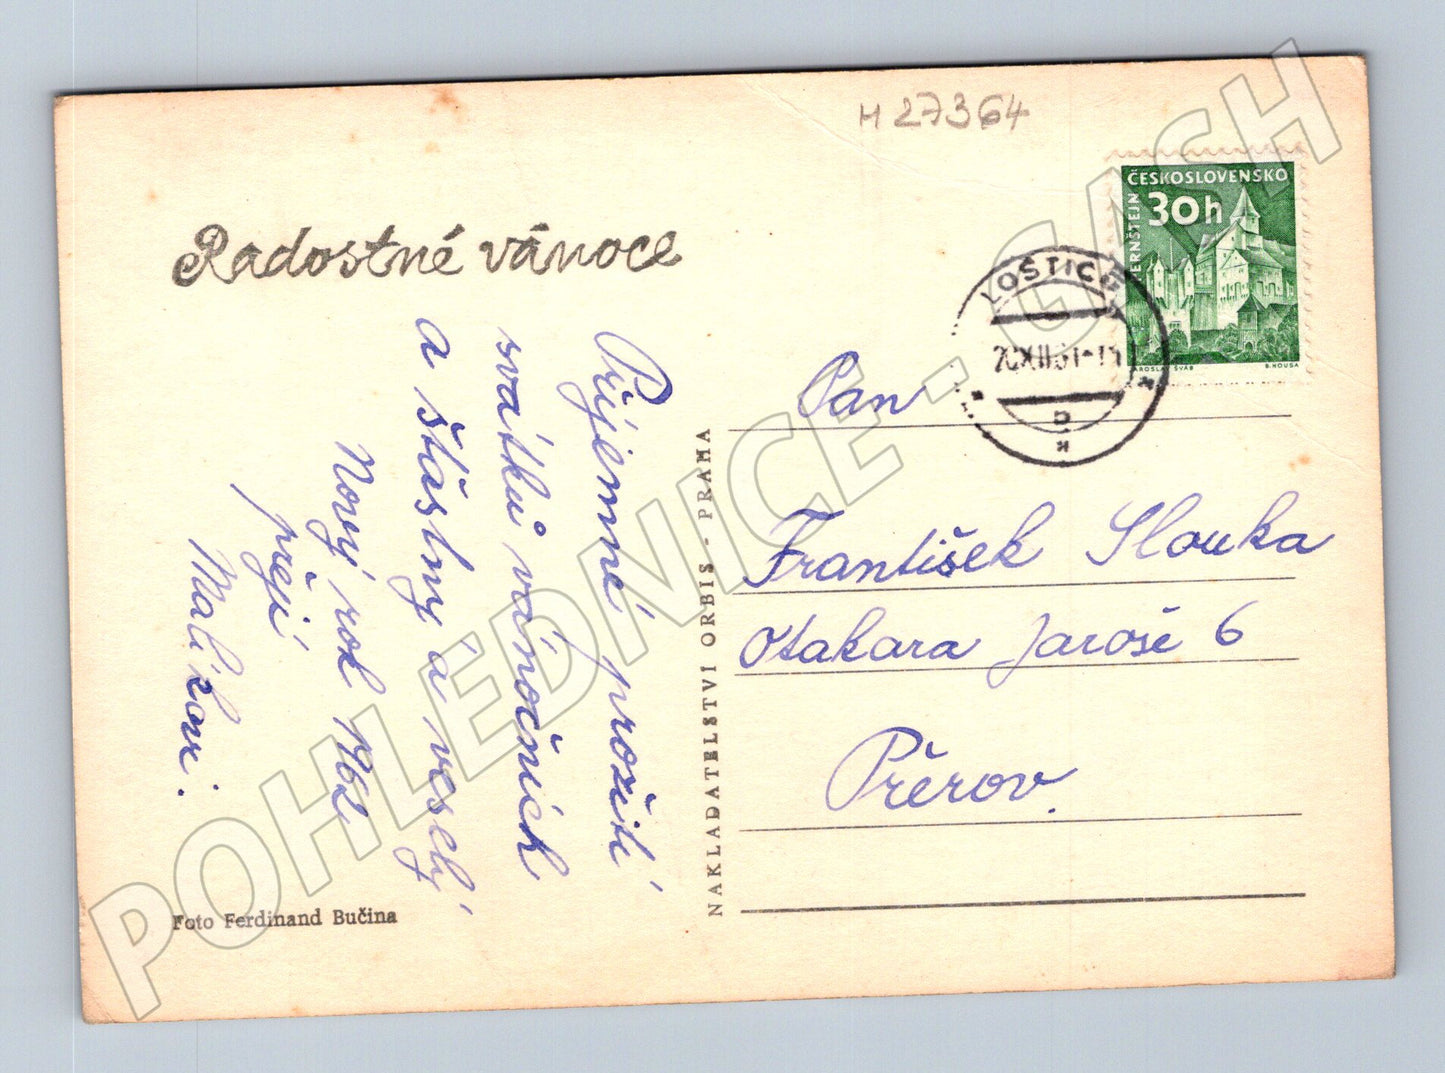 H 27364
Radostné vánoce
Příjemné prožití
svátků vánočních
a šťastný a veselý
Nový rok 1962
přejí
Foto Ferdinand Bučina
NAKLADATELSTVÍ ORBIS - PRAHA
ČESKOSLOVENSKO
30h
PERNŠTEJN
JAROSLAV ŠVÁB
B. HOUSA
LOŠTICE
Pan
František Slouka
Otakara Jaroše 6
Přerov.
POHLEDNICE - GASH